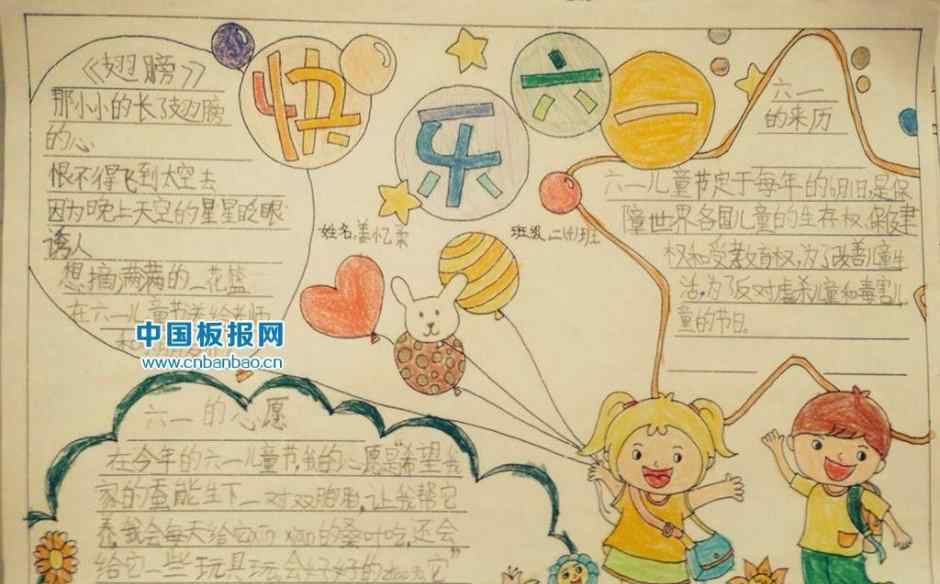 快乐六一
《翅膀》
那小小的长了翅膀
的心
恨不得飞到太空去
因为晚上天空的星星眨眼
诱人
想摘满满的一花篮
在六一儿童节送给老师
中国板报网
www.cnbanbao.cn
姓名:姜忆柔
班级:二(4)班
六一
的来历
六一儿童节定于每年的6月1日,是保
障世界各国儿童的生存权、保健
权和受教育权,为了改善儿童生
活,为了反对虐杀儿童和毒害儿
童的节日。
六一的心愿
在今年的六一儿童节,我的心愿是"希望我
家的蚕能生下一对双胞胎,让我帮它
养,我会每天给它xin xian的桑叶吃,还会
给它一些玩具玩,会好好的 它"